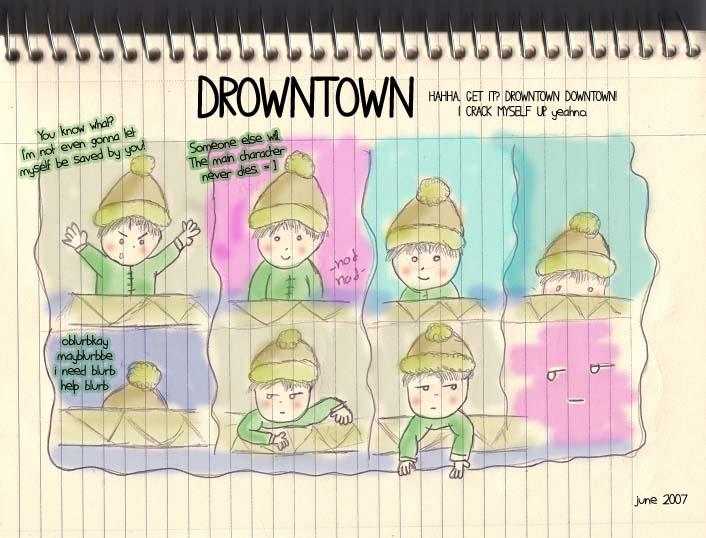 DROWNTOWN
HAHHA. GET IT? DROWNTOWN DOWNTOWN!
I CRACK MYSELF UP yeahno.
You know what?
I'm not even gonna let
myself be saved by you!
Someone else will.
The main character
never dies. =]
-nod
nod-
oblurbkay
mayblurbbe
i need blurb
help blurb
june 2007